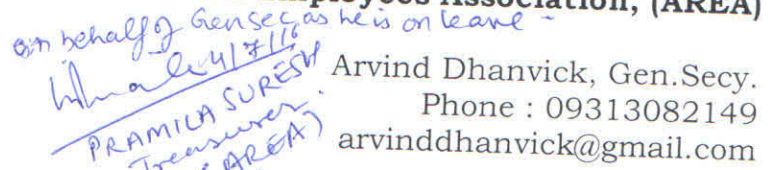 Employees Association, (AREA)
on behalf of Gensec, as he is on leave -
4/7/16
PRAMILA SURESH
Treasurer.
(AREA)
Arvind Dhanvick, Gen.Secy.
Phone : 09313082149
arvinddhanvick@gmail.com